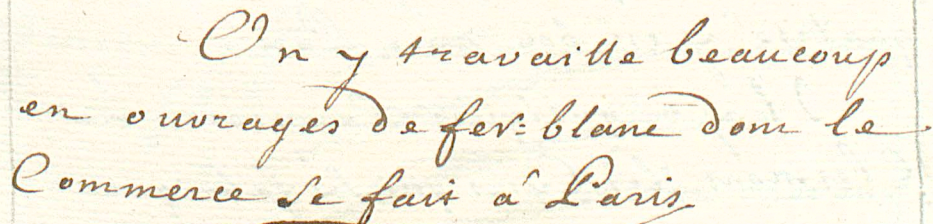 On y travaille beaucoup
en ouvrages de fer=blanc dont le
Commerce se fait à Paris